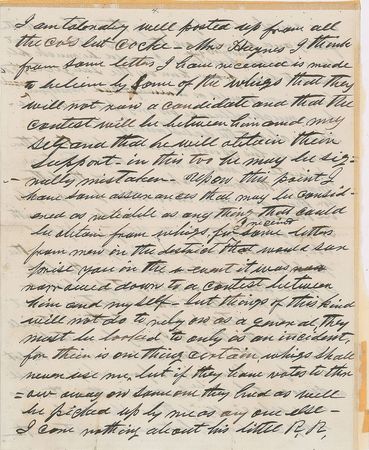 I am tolerably well posted up from all
the co's but Cocke - Mrs Haynes I think
from some letters I have received is made
to believe by some of the whigs that they
will not run a candidate and that the
contest will be between him and my
self and that he will attain their
support - in this too he may be sig-
-nally mistaken - Upon this point I
have some assurances that may be consid-
-ered as reliable as any thing that could
be obtain from whigs, for
some letters
from men in the district that would sur
prise you on the event it was
narrowed down to a contest between
him and myself - but things of this kind
will not do to rely on as a general, they
must be looked to only as an incident,
for there is one thing certain, whigs shall
never use me, but if they have votes to thro
=ow away on someone they had as well
be picked up by me as any one else -
I care nothing about his little R, R,